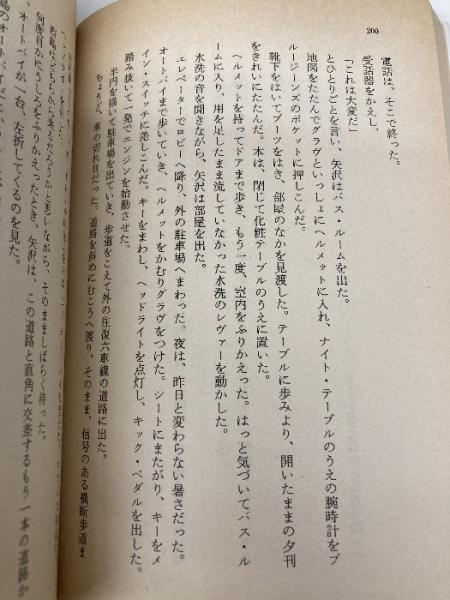 200
電話は、そこで終った。
受話器をかえし、
「これは大変だ」
とひとりごとを言い、矢沢はバス・ルームを出た。
地図をたたんでグラヴといっしょにヘルメットに入れ、ナイト・テーブルのうえの腕時計をブ
ルージーンズのポケットに押しこんだ。
靴下をはいてブーツをはき、部屋のなかを見渡した。テーブルに歩みより、開いたままの夕刊
をきれいにたたんだ。本は、閉じて化粧テーブルのうえに置いた。
ヘルメットを持ってドアまで歩き、もう一度、室内をふりかえった。はっと気づいてバス・ル
ームに入り、用を足したまま流していなかった水洗のレヴァーを動かした。
水洗の音を聞きながら、矢沢は部屋を出た。
エレベーターでロビーへ降り、外の駐車場へまわった。夜は、昨日と変わらない暑さだった。
オートバイまで歩いていき、ヘルメットをかむりグラヴをつけた。シートにまたがり、キーをメ
イン・スイッチに差しこんだ。キーをまわし、ヘッドライトを点灯し、キック・ペダルを出した。
踏み抜いて一発でエンジンを始動させた。
半円を描いて駐車場を出ていき、歩道をこえて外の往復六車線の道路に出た。
ちょうど、車の切れ目だった。道路を斜めにむこうへ渡り、そのまま、信号のある横断歩道ま
ながら、そのまましばらく待った。
何度目かにうしろをふりかえったとき、矢沢は、この道路と直角に交差するもう一本の道路か
のオートバイが一台、左折してくるのを見た。